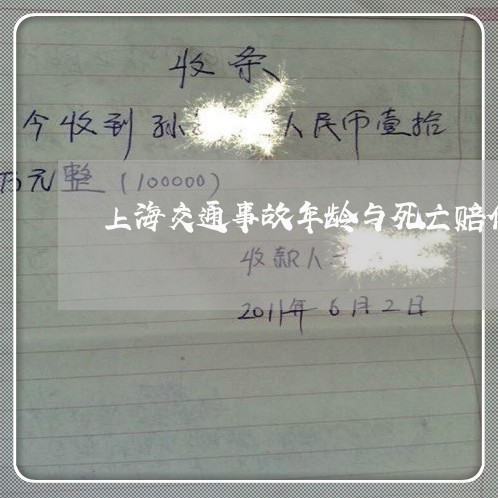 收条
今收到孙 人民币壹拾
万元整(100000)
上海交通事故年龄与死亡赔
收款人
2011年6月2日